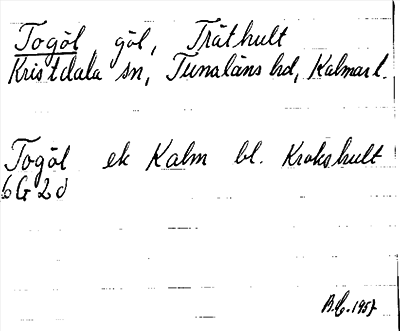 Togöl göl, Träthult
Kristdala sn, Tunaläns hd, Kalmar l.
Togöl ek Kalm bl. Krokshult
6G 2d
B.C. 1957